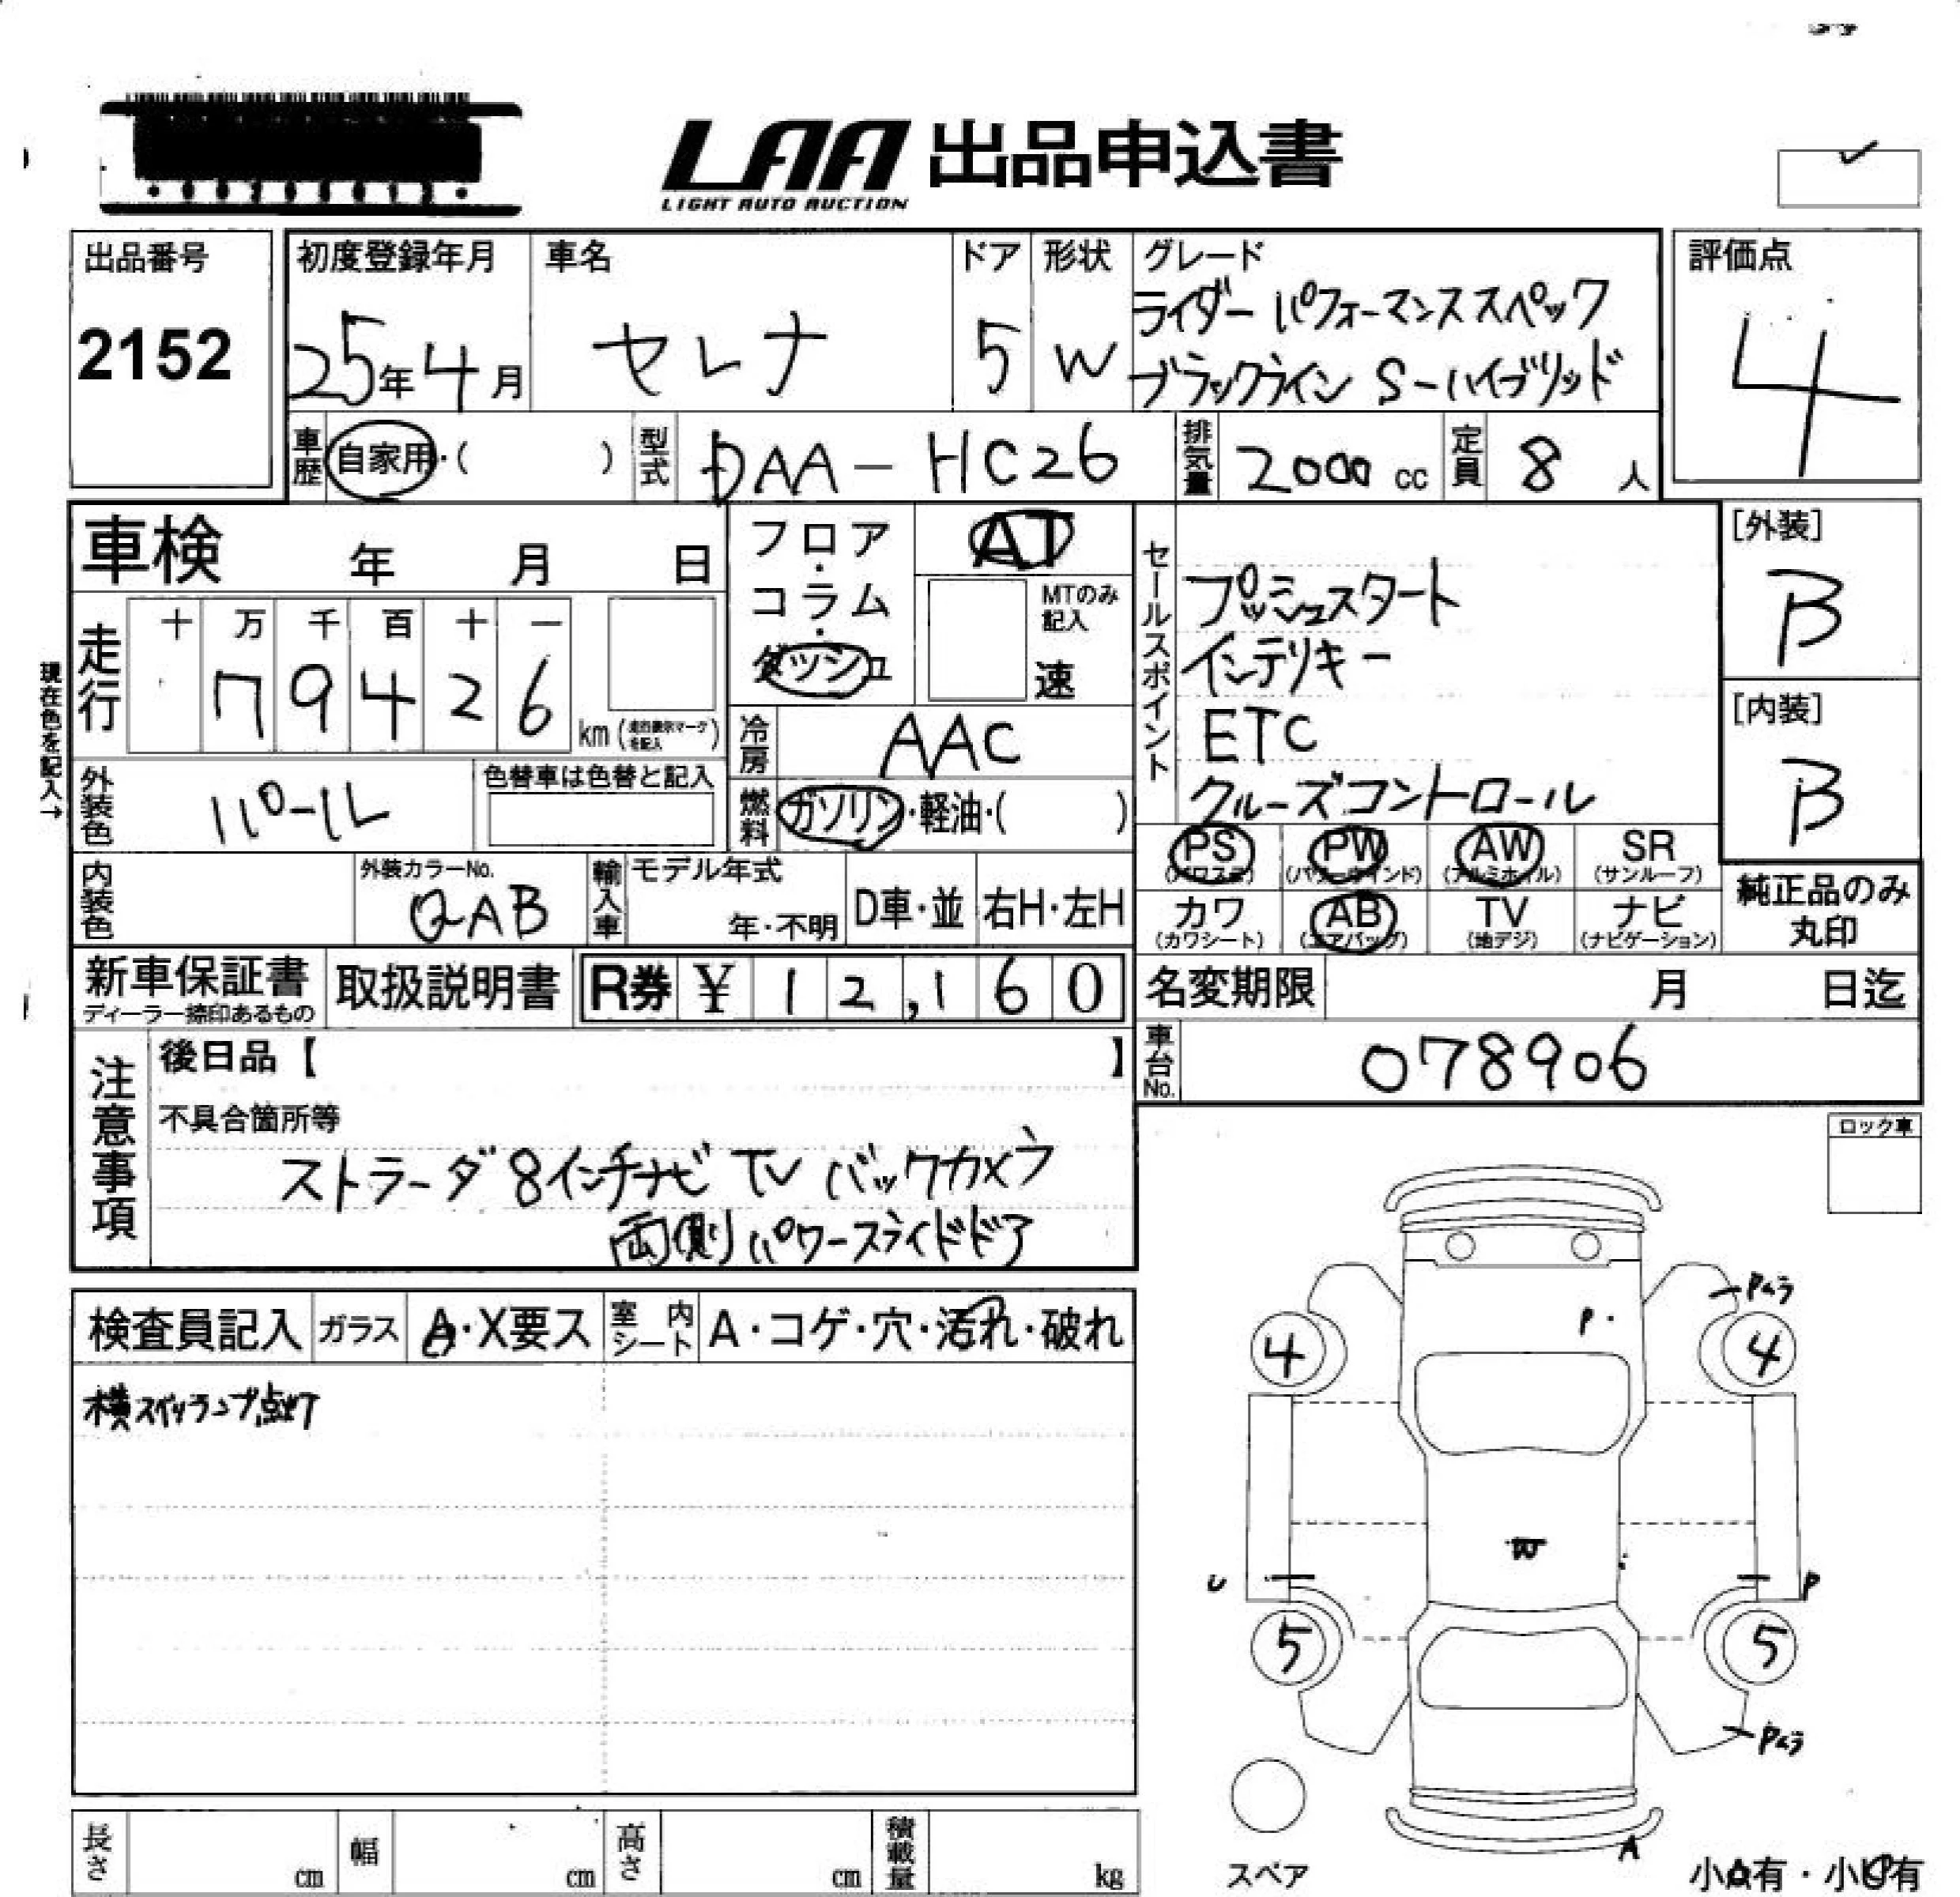 LAA 出品申込書
LIGHT AUTO AUCTION
出品番号
2152
初度登録年月
25年4月
車名
セレナ
ドア
5
形状
W
グレード
ライダー パフォーマンススペック
ブラックライン S-ハイブリッド
評価点
4
車歴
自家用・( )
型式
DAA-HC26
排気量
2000 cc
定員
8 人
車検 年 月 日
フロア・コラム・ダッシュ
AT
MTのみ記入
速
セールスポイント
プッシュスタート
インテリキー
ETC
クルーズコントロール
[外装]
B
[内装]
B
現在色を記入→
走行
十 万 千 百 十 一
7 9 4 2 6
km (走行表示マークを記入)
冷房
AAC
外装色
パール
色替車は色替と記入
燃料
ガソリン・軽油・( )
PS (パワステ)
PW (パワーウインド)
AW (アルミホイル)
SR (サンルーフ)
カワ (カワシート)
AB (エアバッグ)
TV (地デジ)
ナビ (ナビゲーション)
純正品のみ
丸印
内装色
外装カラーNo.
QAB
輸入車
モデル年式
年・不明
D車・並
右H・左H
新車保証書
ディーラー捺印あるもの
取扱説明書
R券 ¥ 12,160
名変期限 月 日迄
車台No.
078906
注意事項
後日品【 】
不具合箇所等
ストラーダ 8インチナビ TV バックカメラ
両側パワースライドドア
ロック車
検査員記入
ガラス
A・X要ス
室内シート
A・コゲ・穴・汚れ・破れ
横スイッランプ点灯
Pムラ
P
4
4
W
U
P
5
5
Pムラ
A
スペア
小A有・小U有
長さ cm
幅 cm
高さ cm
積載量 kg